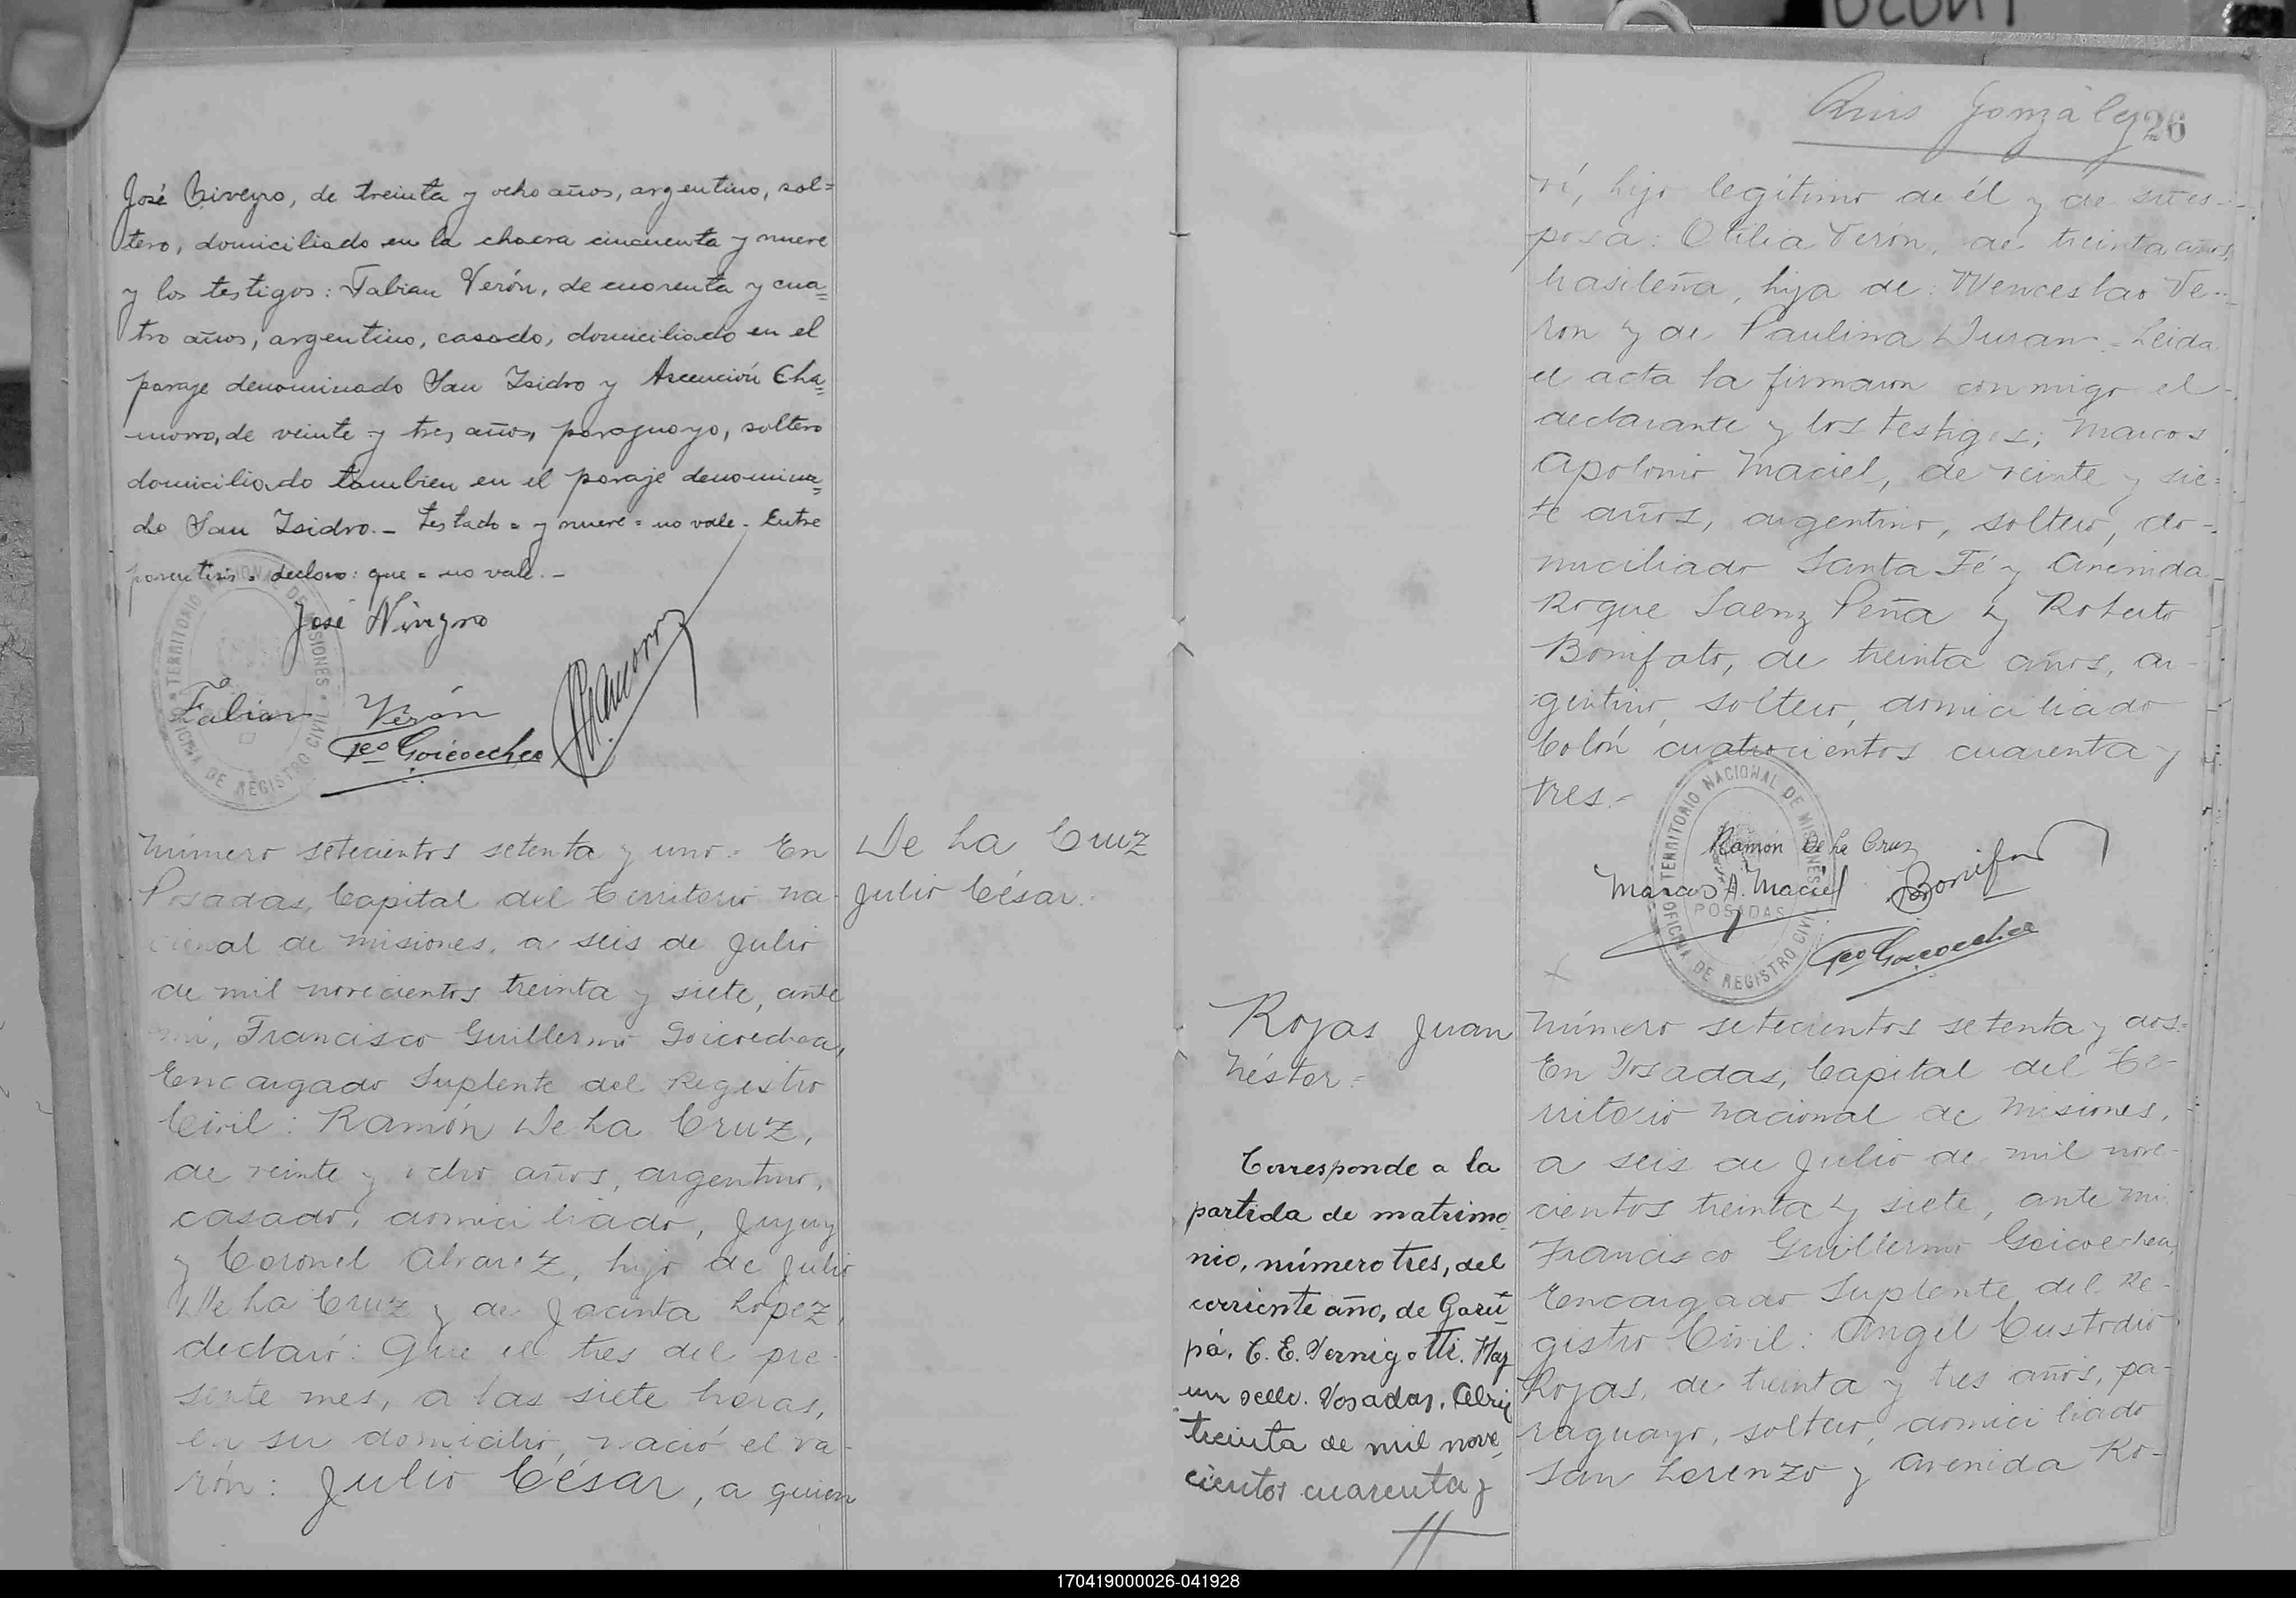 José Niveyro, de treinta y ocho años, argentino, sol=
tero, domiciliado en la chacra cincuenta y nueve
y los testigos: Fabian Verón, de cuarenta y cua=
tro años, argentino, casado, domiciliado en el
paraje denominado San Isidro y Ascención Cha=
morro, de veinte y tres años, paraguayo, soltero
domiciliado tambien en el paraje denomina=
do San Isidro.- Testado = y nueve = no vale - Entre
parentesis = declaro: que = no vale.-
José Niveyro
Fabian Verón
Fco Goicoechea
Chamorro
TERRITORIO NACIONAL DE MISIONES
OFICINA DE REGISTRO CIVIL
Número setecientos setenta y uno = En
Posadas, Capital del Territorio na-
cional de Misiones, a seis de Julio
de mil novecientos treinta y siete, ante
mi, Francisco Guillermo Goicoechea,
Encargado Suplente del Registro
Civil: Ramón De La Cruz,
de veinte y ocho años, argentino,
casado, domiciliado, Jujuy
y Coronel Alvarez, hijo de Julio
De La Cruz y de Jacinta Lopez,
declaró: Que el tres del pre-
sente mes, a las siete horas,
en su domicilio, nació el va-
rón: Julio César, a quien
De La Cruz
Julio César.-
González 26
ví, hijo legítimo de él y de su es-
posa: Otilia Verón, de treinta años,
brasileña, hija de: Wenceslao Ve-
ron y de Paulina Duran = Leida
el acta la firmaron conmigo el
declarante y los testigos; Marcos
Apolonio Maciel, de veinte y sie=
te años, argentino, soltero, do-
miciliado Santa Fé y Avenida
Roque Saenz Peña y Roberto
Bonifato, de treinta años, ar-
gentino, soltero, domiciliado
Colón cuatrocientos cuarenta y
tres.-
Ramón De La Cruz
Marcos A. Maciel
Bonifato
Fco Goicoechea
TERRITORIO NACIONAL DE MISIONES
POSADAS
OFICINA DE REGISTRO CIVIL
Rojas Juan
Néstor =
Corresponde a la
partida de matrimo
nio, número tres, del
corriente año, de Garu-
pá. C. E. Pernigotti. Hay
un sello. Posadas, Abril
treinta de mil nove
cientos cuarenta y
//
Número setecientos setenta y dos=
En Posadas, Capital del Te-
rritorio Nacional de Misiones,
a seis de Julio de mil nove-
cientos treinta y siete, ante mi
Francisco Guillermo Goicoechea,
Encargado Suplente del Re-
gistro Civil: Angel Custodio
Rojas, de treinta y tres años, pa-
raguayo, soltero, domiciliado
San Lorenzo y Avenida Ro-
170419000026-041928